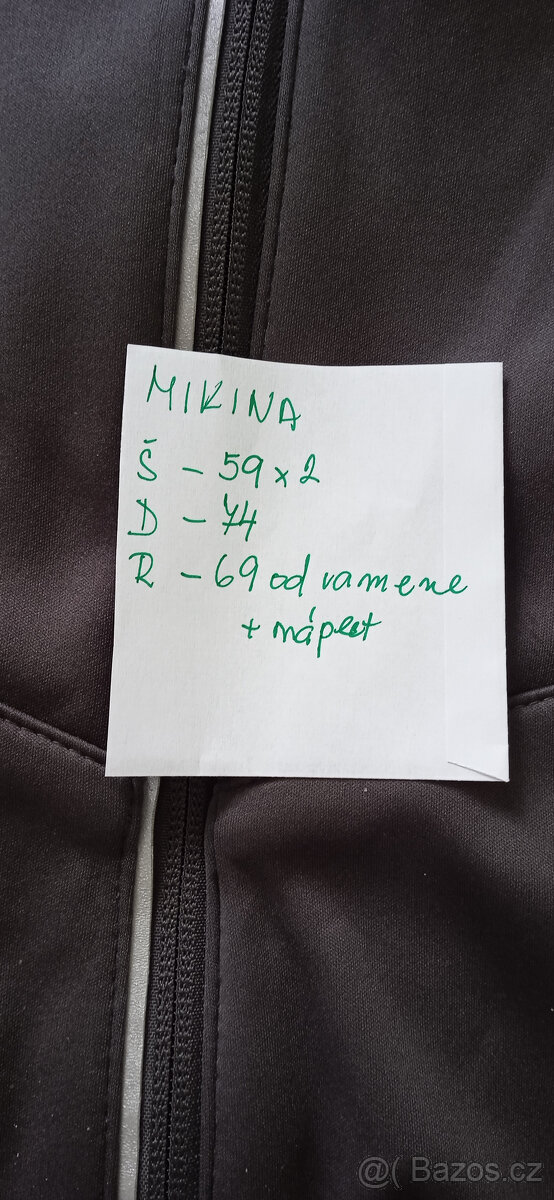 MIKINA
Š - 59 x 2
D - 74
R - 69 od ramene
+ náplet
@( Bazos.cz